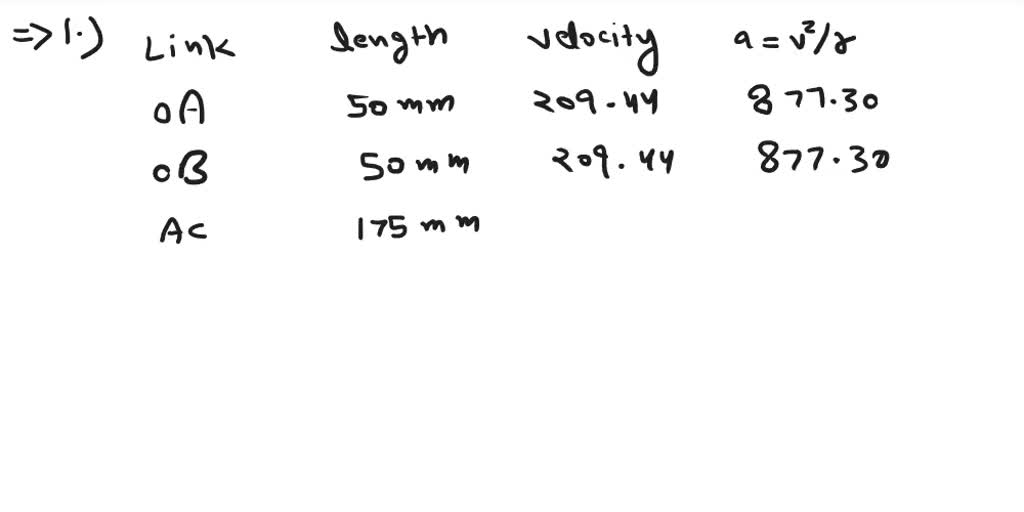 => 1.) Link length velocity a = v²/r
OA 50 mm 209.44 877.30
OB 50 mm 209.44 877.30
AC 175 mm